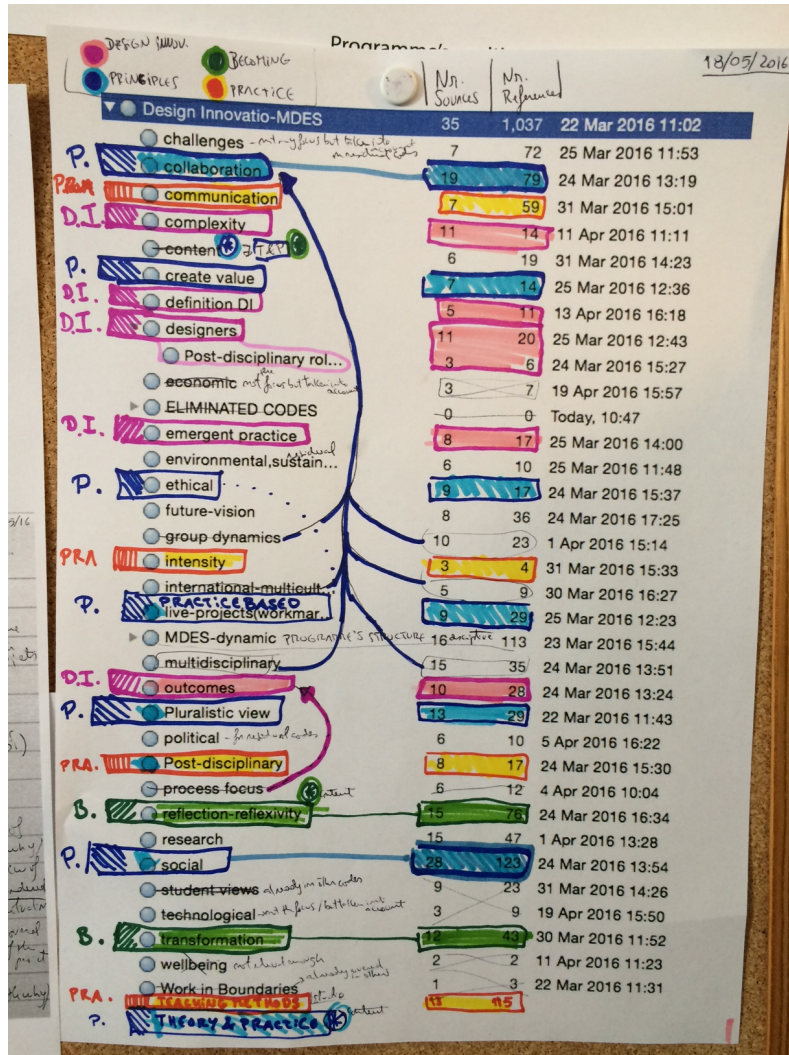 DESIGN INNOV.
BECOMING
PRINCIPLES
PRACTICE
Nr. Sources
Nr. References
18/05/2016
Design Innovatio-MDES 35 1,037 22 Mar 2016 11:02
challenges - not my focus but taken into account 7 72 25 Mar 2016 11:53
P. collaboration 19 79 24 Mar 2016 13:19
PRA communication 7 59 31 Mar 2016 15:01
D.I. complexity 11 14 11 Apr 2016 11:11
content * T&P 6 19 31 Mar 2016 14:23
P. create value 7 14 25 Mar 2016 12:36
D.I. definition DI 5 11 13 Apr 2016 16:18
D.I. designers 11 20 25 Mar 2016 12:43
Post-disciplinary rol... 3 6 24 Mar 2016 15:27
economic not focus but taken into account 3 7 19 Apr 2016 15:57
ELIMINATED CODES 0 0 Today, 10:47
D.I. emergent practice 8 17 25 Mar 2016 14:00
environmental,sustain... residual 6 10 25 Mar 2016 11:48
P. ethical 9 17 24 Mar 2016 15:37
future-vision 8 36 24 Mar 2016 17:25
group dynamics 10 23 1 Apr 2016 15:14
PRA intensity 3 4 31 Mar 2016 15:33
international-multicult... 5 9 30 Mar 2016 16:27
PRACTICE BASED
P. live-projects(workmar... 9 29 25 Mar 2016 12:23
MDES-dynamic PROGRAMME'S STRUCTURE 16 113 23 Mar 2016 15:44
multidisciplinary 15 35 24 Mar 2016 13:51
D.I. outcomes 10 28 24 Mar 2016 13:24
P. Pluralistic view 13 29 22 Mar 2016 11:43
political - residual codes 6 10 5 Apr 2016 16:22
PRA. Post-disciplinary 8 17 24 Mar 2016 15:30
process focus * content 6 12 4 Apr 2016 10:04
B. reflection-reflexivity 15 76 24 Mar 2016 16:34
research 15 47 1 Apr 2016 13:28
P. social 28 123 24 Mar 2016 13:54
student views already in other codes 9 23 31 Mar 2016 14:26
technological - not focus / but taken into account 3 9 19 Apr 2016 15:50
B. transformation 12 43 30 Mar 2016 11:52
wellbeing not relevant enough 2 2 11 Apr 2016 11:23
Work in Boundaries already covered in others 1 3 22 Mar 2016 11:31
PRA. TEACHING METHODS 115
P. THEORY & PRACTICE * content